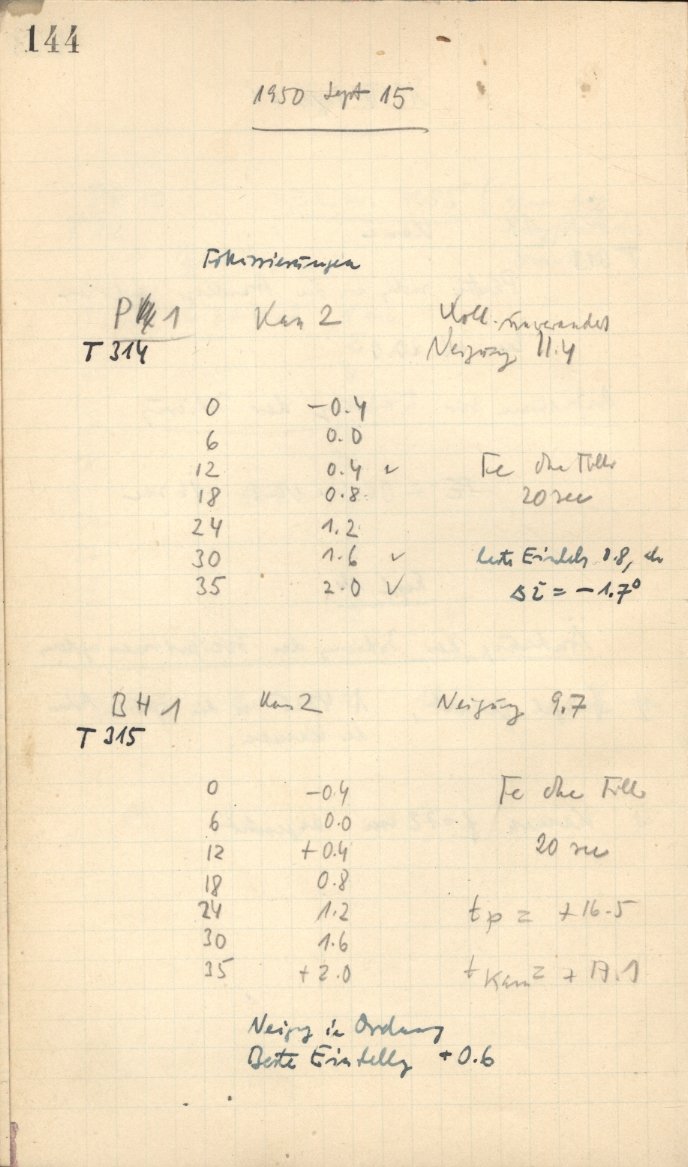 144
1950 Sept 15
Fokussierungen
P 1 Kam 2 Koll. unverändert
T 314 Neigung 11.4
0 -0.4
6 0.0
12 0.4 ✓ Fe ohne Filter
18 0.8 20 sec
24 1.2
30 1.6 ✓ beste Einstellg 0.8,
35 2.0 ✓ Δi = -1.7°
BH 1 Kam 2 Neigung 9.7
T 315
0 -0.4 Fe ohne Filter
6 0.0
12 +0.4 20 sec
18 0.8
24 1.2 tp = +16.5
30 1.6
35 +2.0 tKam = +17.1
Neigg in Ordnung
Beste Einstellg +0.6